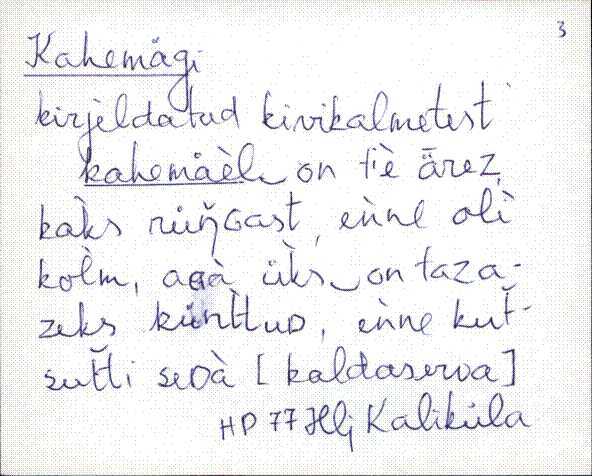 3
Kahemägi
kirjeldatud kivikalmetest
kahemäèl on tìè ärez,
kàks rüŋGast, eǹne olì
kolm̀, aGà üks on taza-
zeks künt̀tuD, eǹne kut̆-
sut̆ti seDà [kaldaserva]
HP 77 Hlj Kaliküla